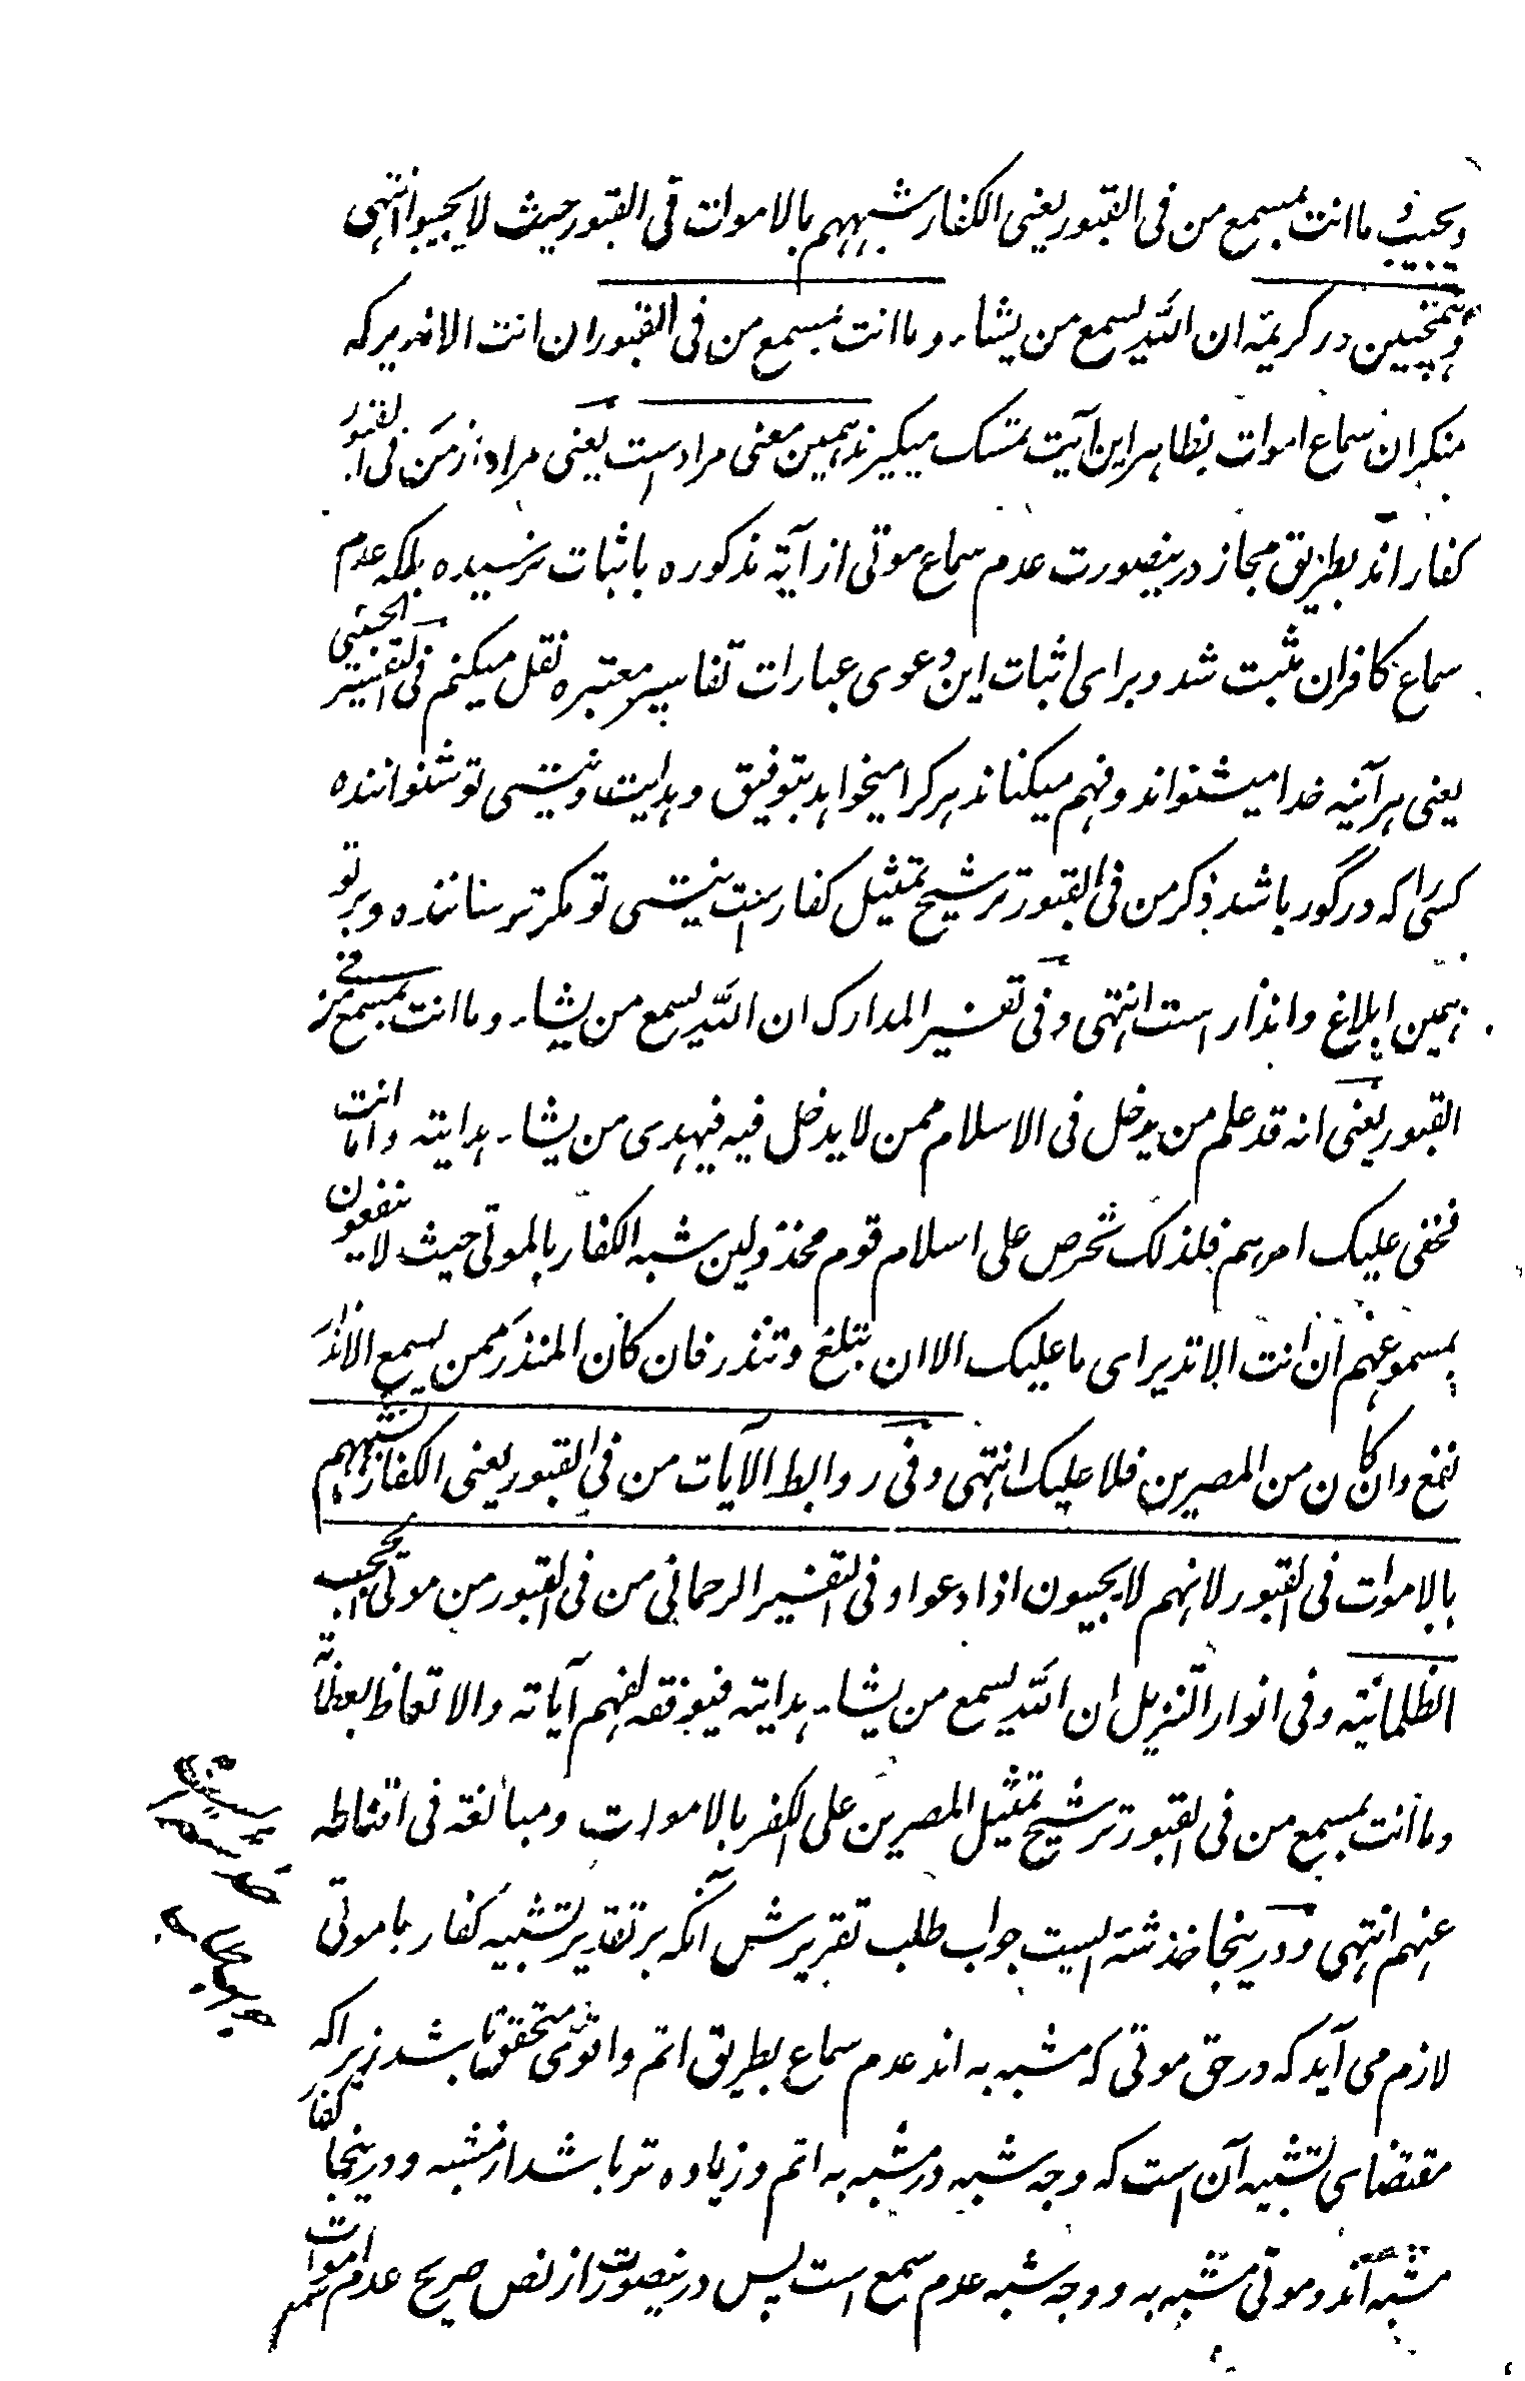 ویجیب ما انت بمسمع من فی القبور یعنی الکفار شبههم بالاموات فی القبور حیث لا یجیبوا انتهی
وهمچنین در کریمه ان الله یسمع من یشاء وما انت بمسمع من فی القبور ان انت الا نذیر که
منکران سماع اموات بظاهر این آیت تمسک میگیرند همین معنی مراد است یعنی مراد از من فی القبور
کفار اند بطریق مجاز درینصورت عدم سماع موتی از آیة مذکوره باثبات نرسیده بلکه عدم
سماع کافران مثبت شد وبرای اثبات این دعوی عبارات تفاسیر معتبره نقل میکنم فی التفسیر الحسینی
یعنی هر آئینه خدا میشنواند و فهم میکناند هر کرا میخواهد بتوفیق و هدایت ونیستی تو شنواننده
کسی را که در گور باشد ذکر من فی القبور ترشیح تمثیل کفار ست نیستی تو مگر ترساننده و بر تو
همین ابلاغ وانذار است انتهی وفی تفسیر المدارک ان الله یسمع من یشاء وما انت بمسمع من فی
القبور یعنی انه قد علم من یدخل فی الاسلام ممن لا یدخل فیه فیهدی من یشاء هدایته واما انت
فخفی علیک امرهم فلذلک تحرص علی اسلام قوم مخذولین شبه الکفار بالموتی حیث لا ینفعون
بمسموعهم ان انت الا نذیر ای ما علیک الا ان تبلغ وتنذر فان کان المنذر ممن یسمع الانذار
نفع وان کان من المصرین فلا علیک انتهی وفی روابط الآیات من فی القبور یعنی الکفار شبههم
بالاموات فی القبور لانهم لا یجیبون اذا دعوا وفی التفسیر الرحمانی من فی القبور من موتی الحجب
الظلمانیة وفی انوار التنزیل ان الله یسمع من یشاء هدایته فیوفقه لفهم آیاته والاتعاظ بعظاته
وما انت بمسمع من فی القبور ترشیح تمثیل المصرین علی الکفر بالاموات ومبالغة فی اقناطه
عنهم انتهی ودرینجا خدشه ایست جواب طلب تقریرش آنکه بر تقدیر تشبیه کفار با موتی
لازم می آید که در حق موتی که مشبه به اند عدم سماع بطریق اتم واقوی متحقق باشد زیراکه
مقتضای تشبیه آن است که وجه شبه در مشبه به اتم و زیاده تر باشد از مشبه ودرینجا کفار
مشبه اند وموتی مشبه به ووجه شبه عدم سمع است پس درینصورت از نص صریح عدم سمع اموات